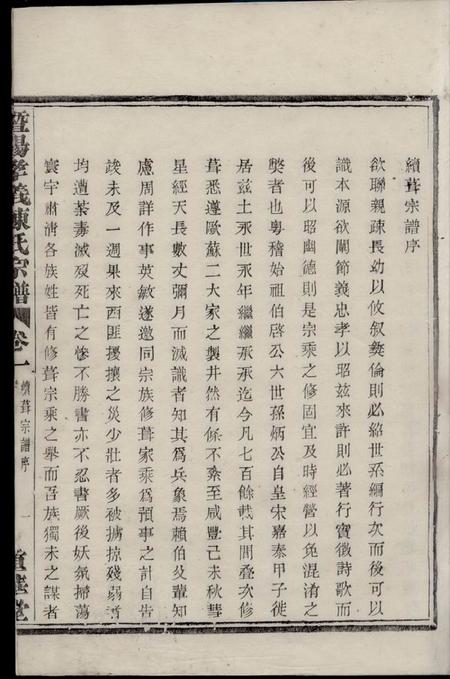 續葺宗譜序
欲聯親疎長幼以攸叙彜倫則必紹世系編行次而後可以
識本源欲闡節義忠孝以昭茲來許則必著行實徵詩歌而
後可以昭幽德則是宗乘之修固宜及時經營以免混淆之
獘者也粵稽始祖伯啓公六世孫炳公自皇宋嘉泰甲子徙
居茲土永世永年繼繼承承迄今凡七百餘載其間叠次修
葺悉遵歐蘇二大家之製井然有條不紊至咸豐己未秋彗
星經天長數丈彌月而滅識者知其為兵象焉賴伯父輩知
慮周詳作事英敏遂邀同宗族修葺家乘為預事之計自告
竣未及一週果來西匪擾攘之災少壯者多被擄掠殘弱者
均遭荼毒滅沒死亡之慘不勝書亦不忍書厥後妖氛掃蕩
寰宇肅清各族姓皆有修葺宗乘之舉而吾族獨未之謀者
暨陽孝義陳氏宗譜 卷一 續葺宗譜序 一